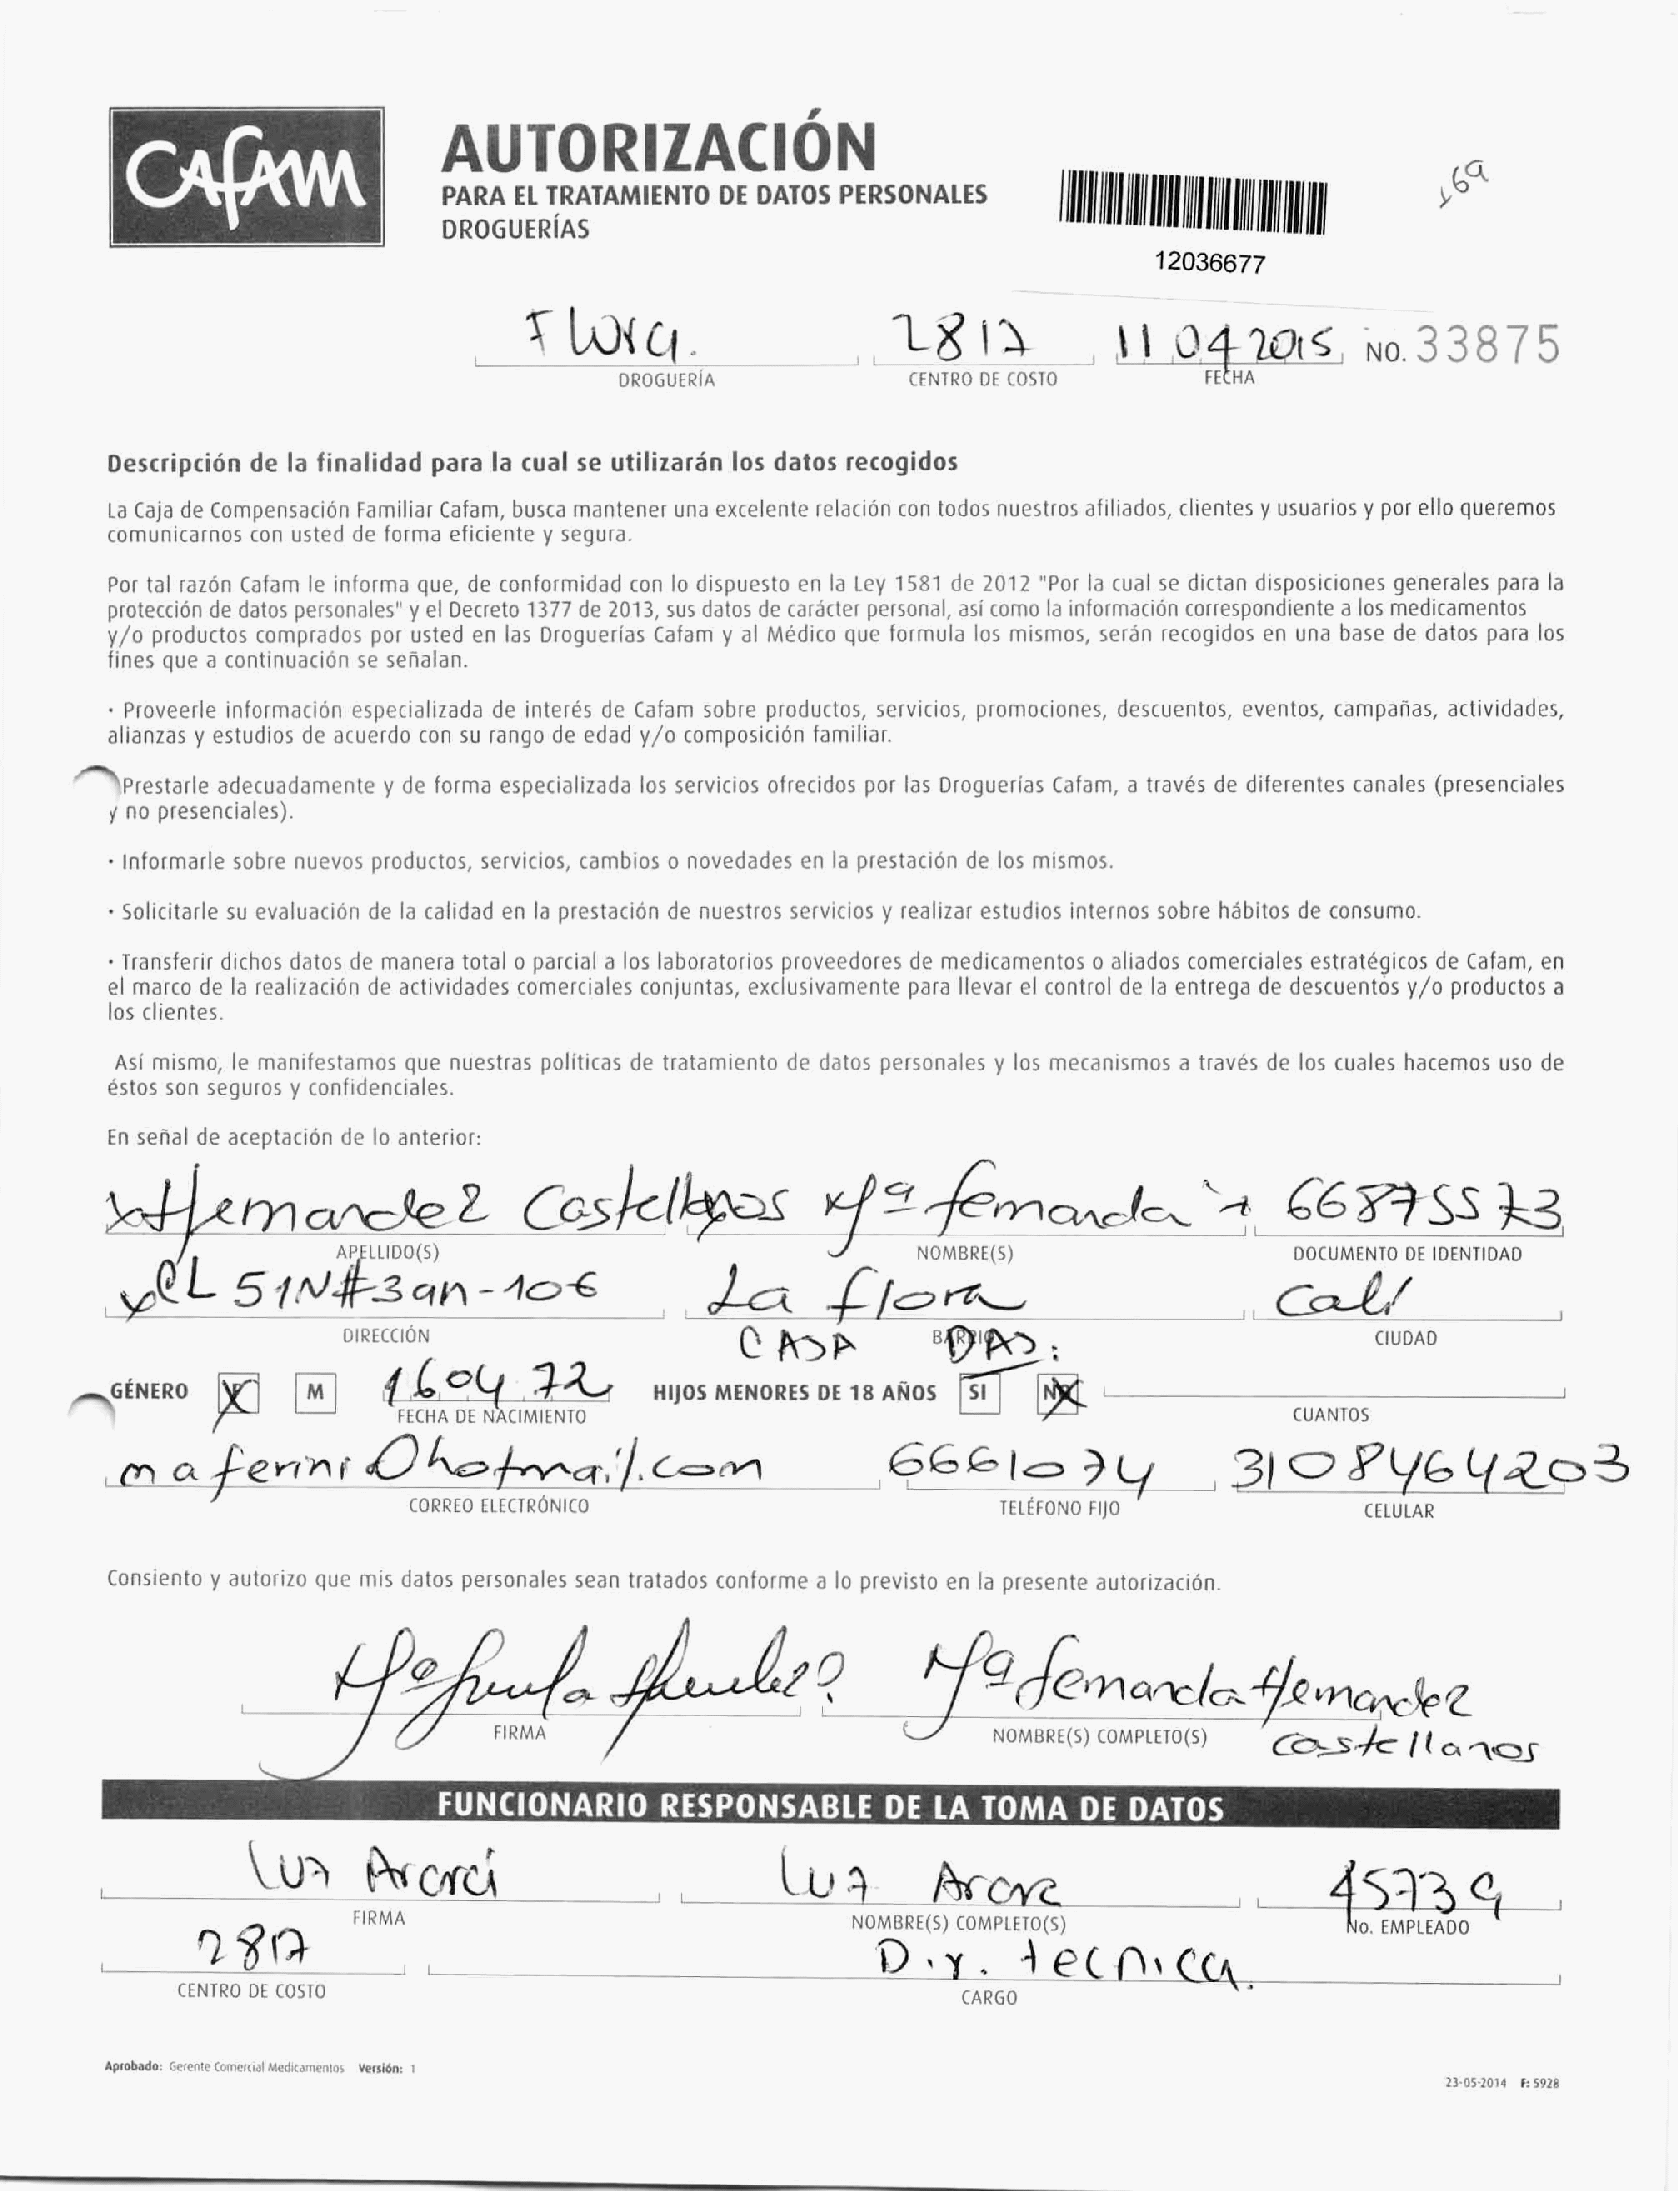 Cafam
AUTORIZACIÓN
PARA EL TRATAMIENTO DE DATOS PERSONALES
DROGUERÍAS
169
12036677
Flora. 2817 11 04 2015 NO. 33875
DROGUERÍA CENTRO DE COSTO FECHA
Descripción de la finalidad para la cual se utilizarán los datos recogidos
La Caja de Compensación Familiar Cafam, busca mantener una excelente relación con todos nuestros afiliados, clientes y usuarios y por ello queremos
comunicarnos con usted de forma eficiente y segura.
Por tal razón Cafam le informa que, de conformidad con lo dispuesto en la Ley 1581 de 2012 "Por la cual se dictan disposiciones generales para la
protección de datos personales" y el Decreto 1377 de 2013, sus datos de carácter personal, así como la información correspondiente a los medicamentos
y/o productos comprados por usted en las Droguerías Cafam y al Médico que formula los mismos, serán recogidos en una base de datos para los
fines que a continuación se señalan.
· Proveerle información especializada de interés de Cafam sobre productos, servicios, promociones, descuentos, eventos, campañas, actividades,
alianzas y estudios de acuerdo con su rango de edad y/o composición familiar.
Prestarle adecuadamente y de forma especializada los servicios ofrecidos por las Droguerías Cafam, a través de diferentes canales (presenciales
y no presenciales).
· Informarle sobre nuevos productos, servicios, cambios o novedades en la prestación de los mismos.
· Solicitarle su evaluación de la calidad en la prestación de nuestros servicios y realizar estudios internos sobre hábitos de consumo.
· Transferir dichos datos de manera total o parcial a los laboratorios proveedores de medicamentos o aliados comerciales estratégicos de Cafam, en
el marco de la realización de actividades comerciales conjuntas, exclusivamente para llevar el control de la entrega de descuentos y/o productos a
los clientes.
Así mismo, le manifestamos que nuestras políticas de tratamiento de datos personales y los mecanismos a través de los cuales hacemos uso de
éstos son seguros y confidenciales.
En señal de aceptación de lo anterior:
x Hernandez Castellanos Mª fernanda x 66875573
APELLIDO(S) NOMBRE(S) DOCUMENTO DE IDENTIDAD
x CL 51N#3an-106 La flora Cali
DIRECCIÓN BARRIO CIUDAD
CASA DAS:
GÉNERO X M 160472 HIJOS MENORES DE 18 AÑOS SI NO X
FECHA DE NACIMIENTO CUANTOS
maferini@hotmail.com 6661074 3108464203
CORREO ELECTRÓNICO TELÉFONO FIJO CELULAR
Consiento y autorizo que mis datos personales sean tratados conforme a lo previsto en la presente autorización.
Mª fernanda Hernandez
FIRMA NOMBRE(S) COMPLETO(S) castellanos
FUNCIONARIO RESPONSABLE DE LA TOMA DE DATOS
Luz Luz 45739
FIRMA NOMBRE(S) COMPLETO(S) No. EMPLEADO
2817 Dir. tecnica.
CENTRO DE COSTO CARGO
Aprobado: Gerente Comercial Medicamentos Versión: 1
23-05-2014 F: 5928